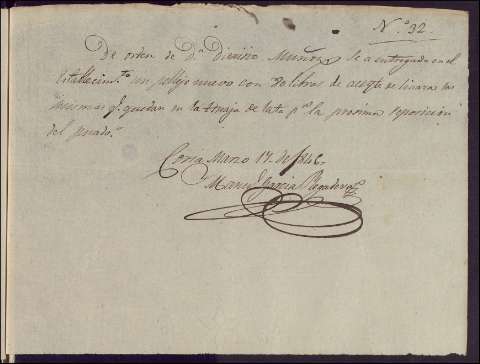 N.º 32.
De orden de D.n Dionisio Muñoz se a entregado en el
Establecim.to un pellejo nuevo con 70 libras de aceyte de linaza las
mismas q.e quedan en la tinaja de lata p.a la procsima reposicion
del ganado.
Coria Marzo 17. de 1846.
Man.l Garcia